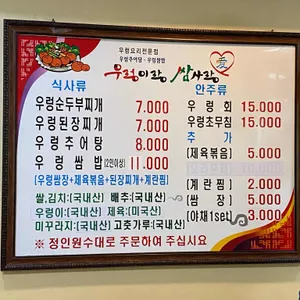 우렁요리전문점
우렁추어탕 · 우렁쌈밥
우렁이랑 쌈사랑 愛
식사류
우렁순두부찌개 7.000
우렁된장찌개 7.000
우렁추어탕 8.000
우렁쌈밥(2인이상) 11.000
[우렁쌈장+제육볶음+된장찌개+계란찜]
안주류
우렁회 15.000
우렁초무침 15.000
추가
(제육볶음) 5.000
(계란찜) 2.000
(쌈장) 5.000
(야채1set) 3.000
쌀,김치:(국내산) 배추:(국내산)
우렁이:(국내산) 제육:(미국산)
미꾸라지:(국내산) 고춧가루:(국내산)
※ 정인원수대로 주문하여 주십시요